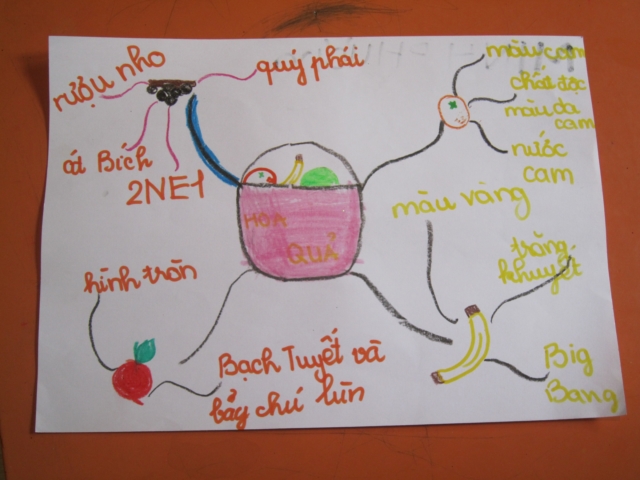 rượu nho
quý phái
át Bích
2NE1
màu cam
chất độc
màu da
cam
nước
cam
HOA
QUẢ
màu vàng
trăng
khuyết
Big
Bang
hình tròn
Bạch Tuyết và
bảy chú lùn